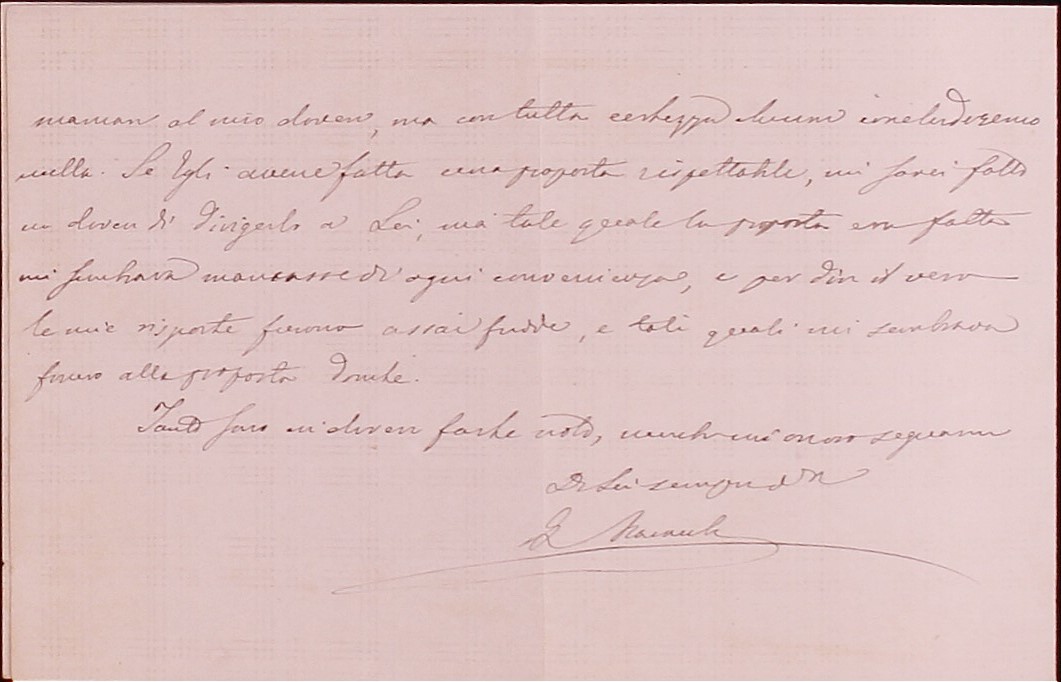 mancar al mio dovere, ma con tutta certezza concluderemo
nulla. Se Egli avesse fatta una proposta rispettabile, mi sarei fatto
un dovere di dirigerlo a Lei, ma tale quale la proposta era fatta
mi sembrava mancasse di ogni convenienza, e per dir il vero
le mie risposte furono assai fredde, e tali quali mi sembrava
fossero alla proposta
Tanto sono in dovere farle noto, mentre mi onoro segnarmi
Di Lei sempre